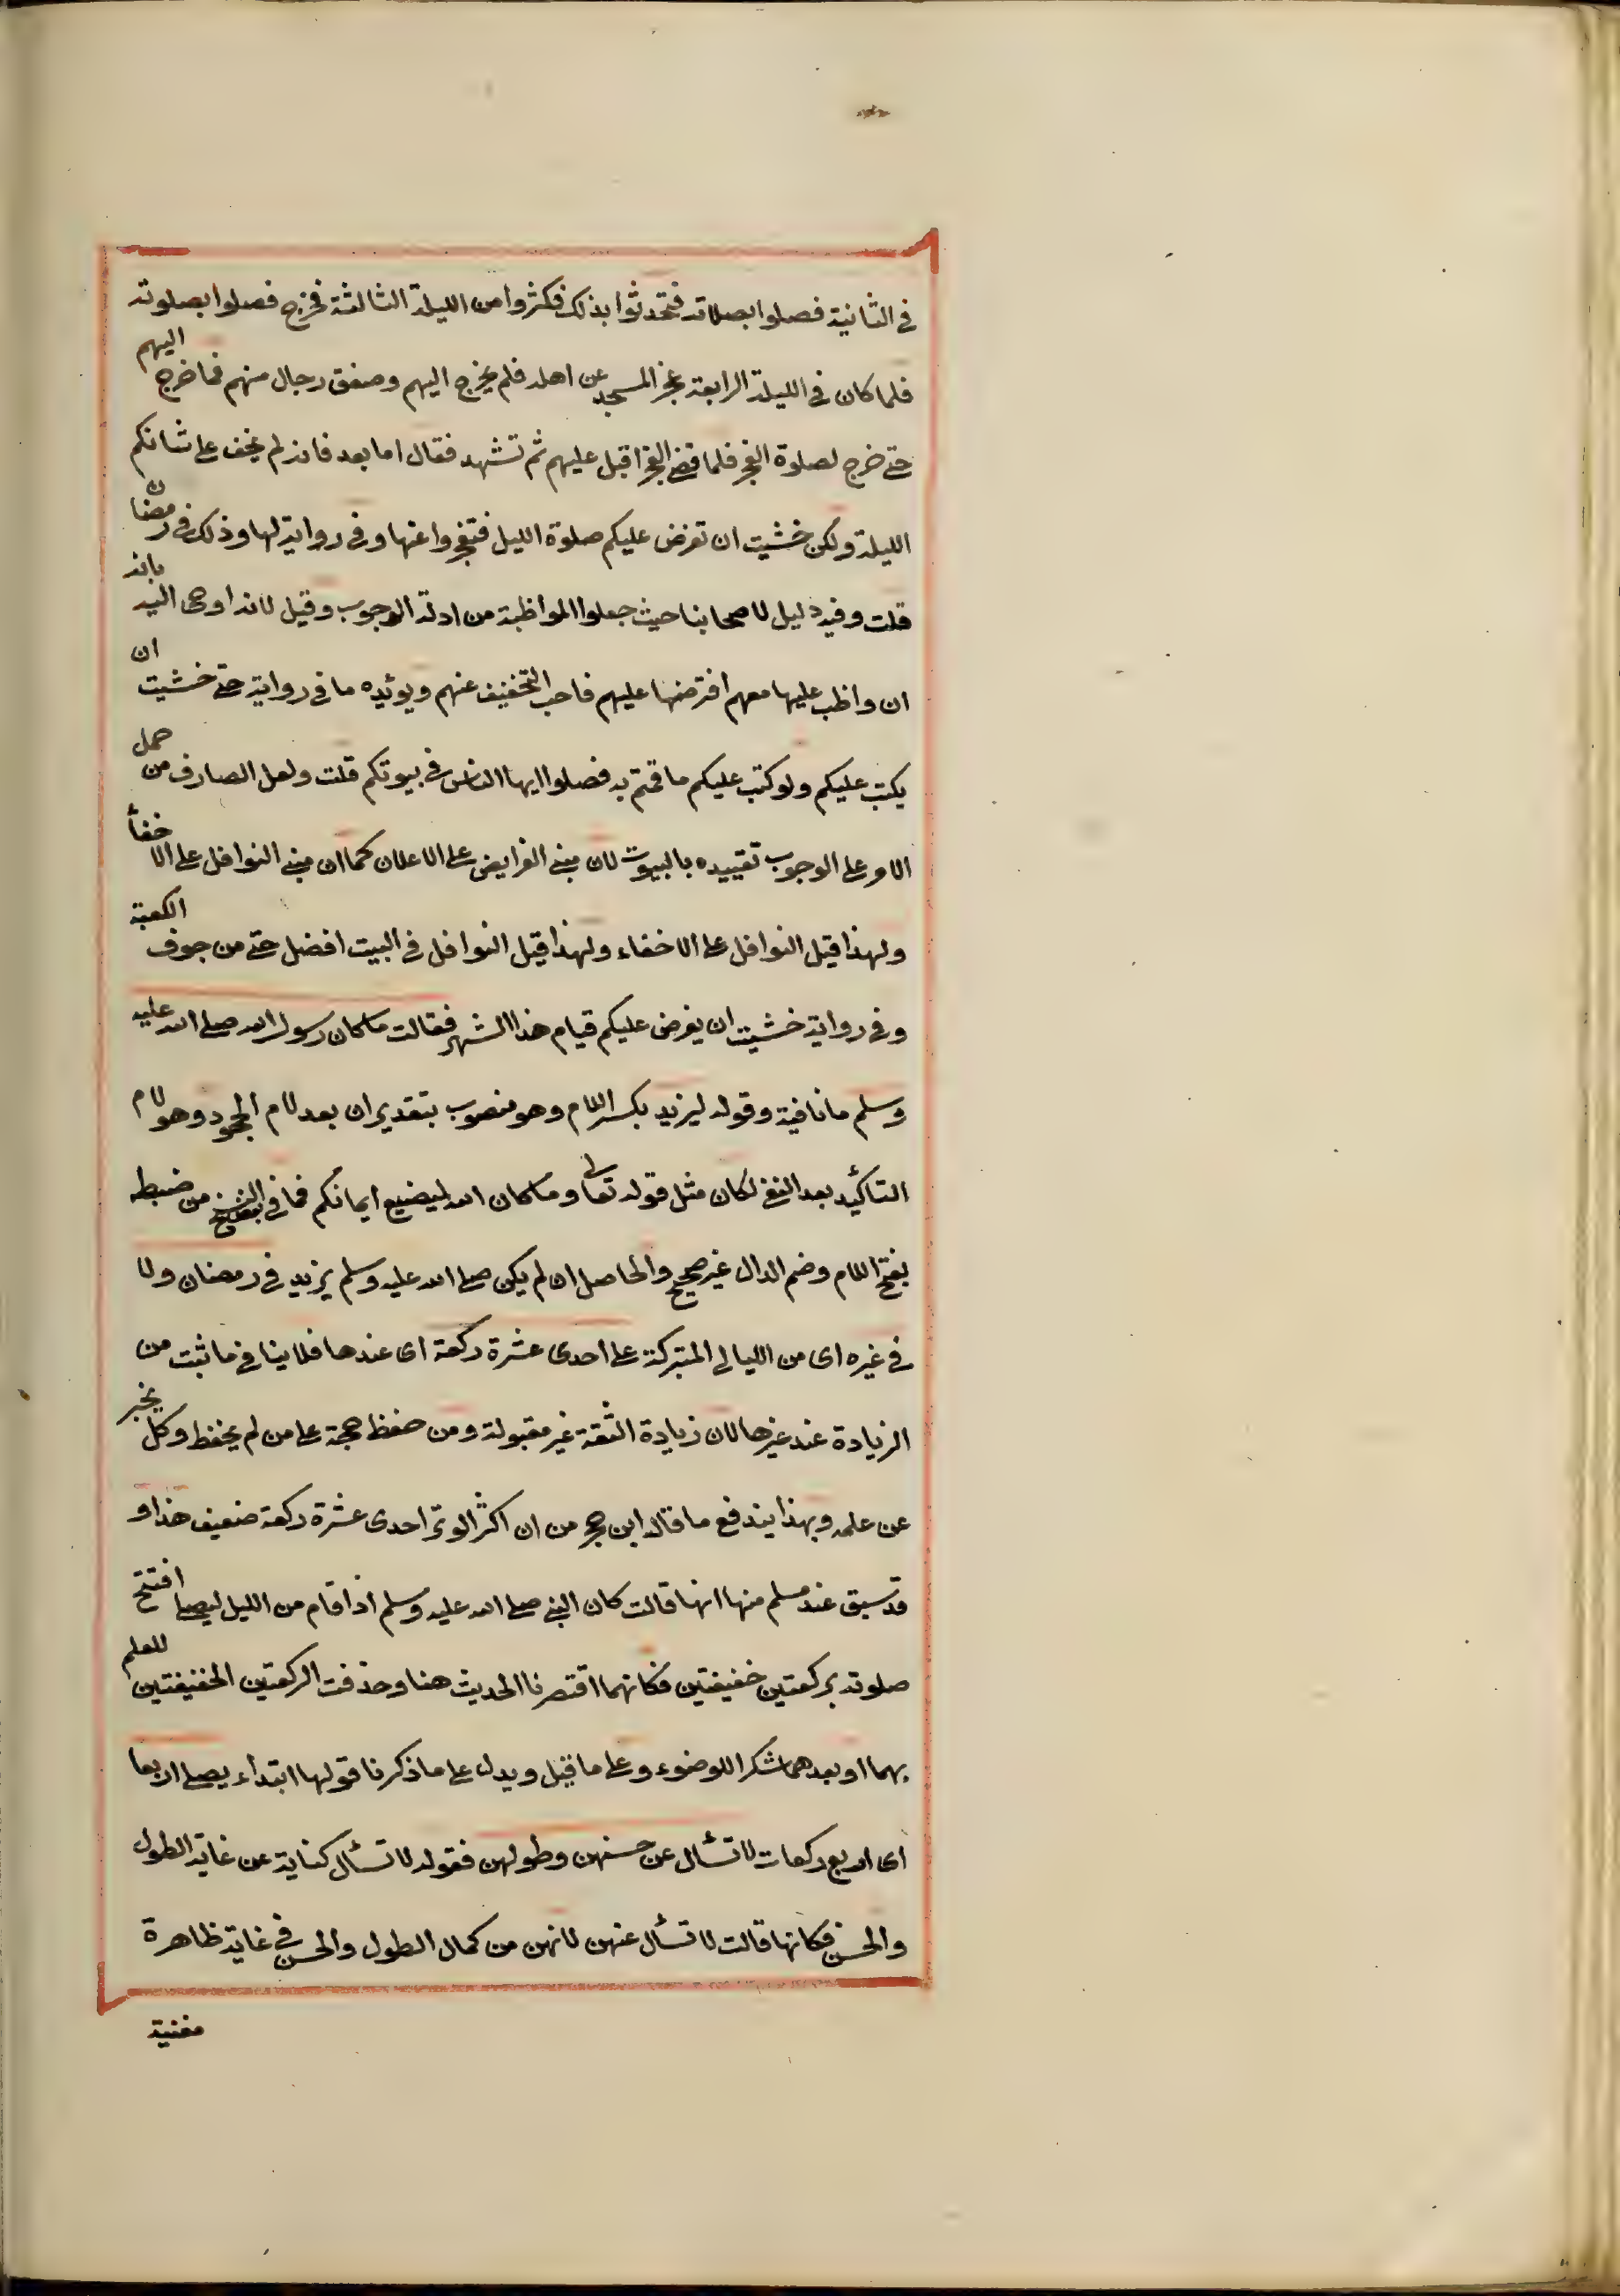 في الثانية فصلوا بصلاته فتحدثوا بذلك فكثروا من الليلة الثالثة فخرج فصلوا بصلوته
فلما كان في الليلة الرابعة عجز المسجد عن اهله فلم يخرج اليهم وصفق رجال منهم فما خرج اليهم
حتى خرج لصلوة الفجر فلما قضى الفجر اقبل عليهم ثم تشهد فقال اما بعد فانه لم يخف على شانكم
الليلة ولكن خشيت ان تفرض عليكم صلوة الليل فتعجزوا عنها وفي رواية لها وذلك في رمضان
قلت وفيه دليل لاصحابنا حيث جعلوا المواظبة من ادلة الوجوب وقيل لانه اوحى اليه بانه
ان واظب عليها معهم افترضها عليهم فاحب التخفيف عنهم ويوئيده ما في رواية حتى خشيت ان
يكتب عليكم ولو كتب عليكم ما قمتم به فصلوا ايها الناس في بيوتكم قلت ولعل الصارف من حمل
الامر على الوجوب تقييده بالبيوت لان مبنى الفرايض على الاعلان كما ان مبنى النوافل على الاخفأ
ولهذا قيل النوافل على الاخفاء ولهذا قيل النوافل في البيت افضل حتى من جوف الكعبة
وفي رواية خشيت ان يفرض عليكم قيام هذا الشهر فقالت ما كان رسول الله صلى الله عليه
وسلم ما نافية وقوله ليزيد بكسر اللام وهو منصوب بتقدير ان بعد لام الجحود وهو لام
التاكيد بعد النفي لكان مثل قوله تعالى وما كان الله ليضيع ايمانكم فما في النسخ من ضبطه
بفتح اللام وضم الدال غير صحيح والحاصل ان لم يكن صلى الله عليه وسلم يزيد في رمضان ولا
في غيره اى من الليالي المتبركة على احدى عشرة ركعة اى عندها فلا ينافي ما ثبت من
الزيادة عند غيرها لان زيادة الثقة غير مقبولة ومن حفظ حجة على من لم يحفظ وكل يخبر
عن علمه وبهذا يندفع ما قاله ابن حجر من ان اكثر الوتر احدى عشرة ركعة ضعيف هذا و
قد سبق عند مسلم منها انها قالت كان النبي صلى الله عليه وسلم اذا قام من الليل ليصلي افتتح
صلوته بركعتين خفيفتين فكانهما اقتصرنا الحديث هنا وحذفت الركعتين الخفيفتين للعلم
بهما او بعدهما شكر اللوضوء وعلى ما قيل ويدل على ما ذكرنا قولها ابتداء يصلي اربعا
اى اربع ركعات لا تسأل عن حسنهن وطولهن فقوله لا تسأل كناية عن غاية الطول
والحسن فكانها قالت لا تسأل عنهن لانهن من كمال الطول والحسن في غاية ظاهرة
مغنية